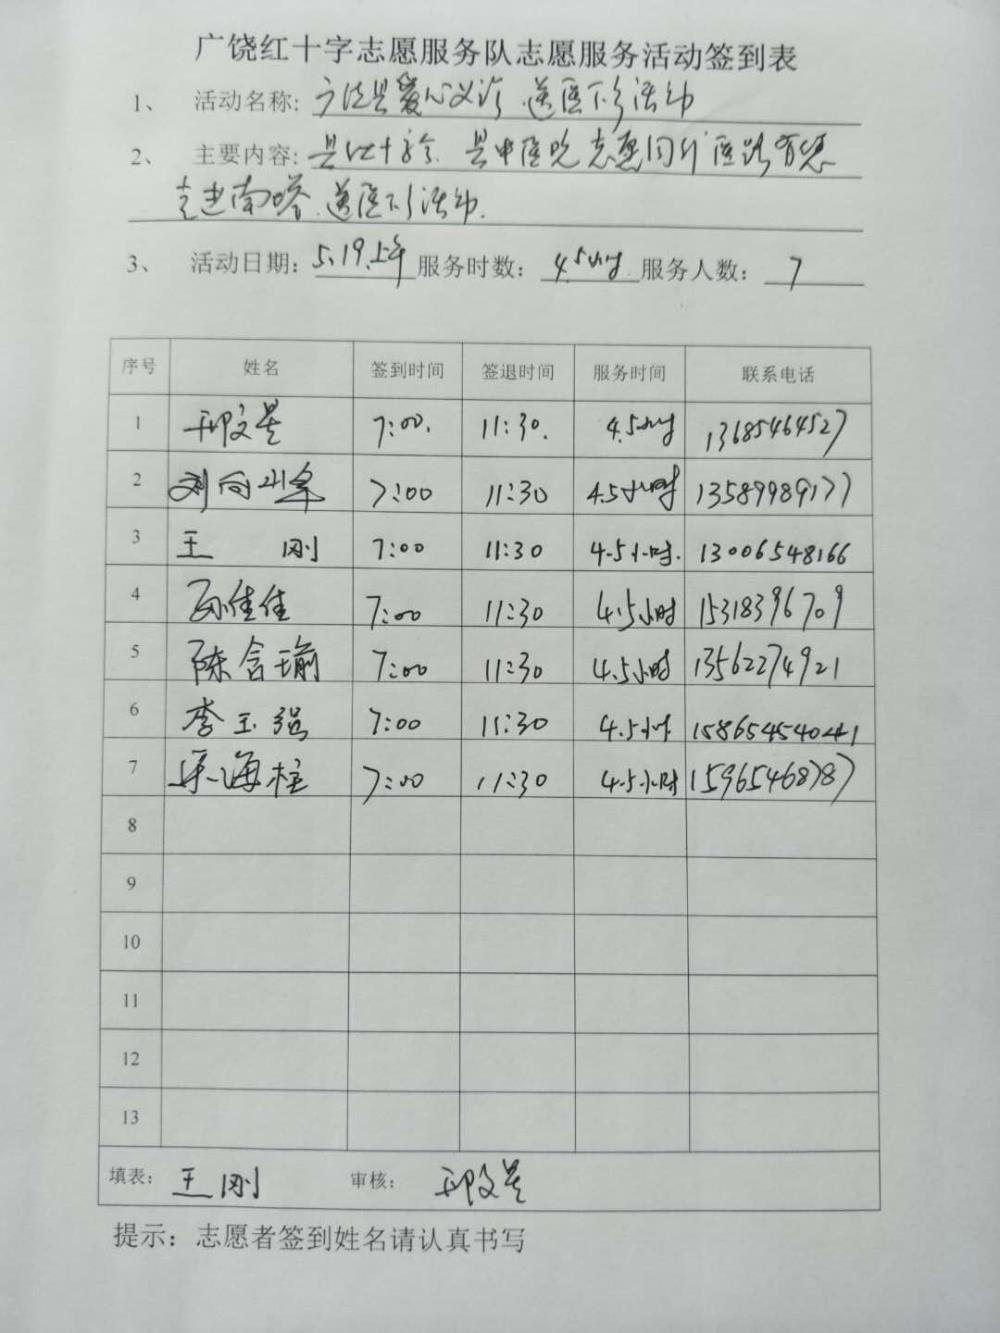 广饶红十字志愿服务队志愿服务活动签到表
1、 活动名称: 广饶县爱心义诊、送医下乡活动
2、 主要内容: 县红十字会、县中医院志愿同行 医路有您
走进南塔、送医下乡活动.
3、 活动日期: 5.19.上午 服务时数: 4.5小时 服务人数: 7
序号 姓名 签到时间 签退时间 服务时间 联系电话
1 邢文昊 7:00. 11:30. 4.5小时 13685464527
2 刘向 7:00 11:30 4.5小时 13589989177
3 王刚 7:00 11:30 4.5小时. 13006548166
4 孙佳佳 7:00 11:30 4.5小时 15318396709
5 陈含瑜 7:00 11:30 4.5小时 13562274921
6 李玉强 7:00 11:30 4.5小时 15865454041
7 海柱 7:00 11:30 4.5小时 15965468787
8
9
10
11
12
13
填表: 王刚 审核: 邢文昊
提示: 志愿者签到姓名请认真书写